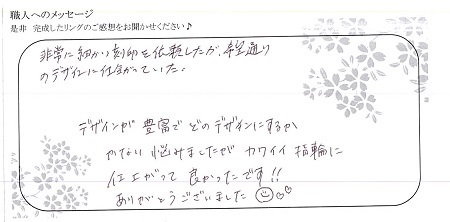 職人へのメッセージ
是非 完成したリングのご感想をお聞かせください♪
非常に細かい刻印を依頼したが、希望通り
のデザインに仕上がっていた。
デザインが 豊富で どのデザインにするか
かなり 悩みましたが カワイイ 指輪に
仕上がって 良かったです!!
ありがとうございました